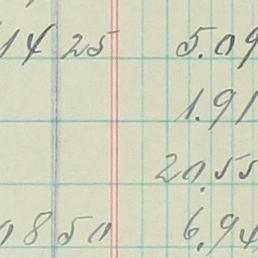 14 25 5.09
1.91
20.55
18 50 6.94